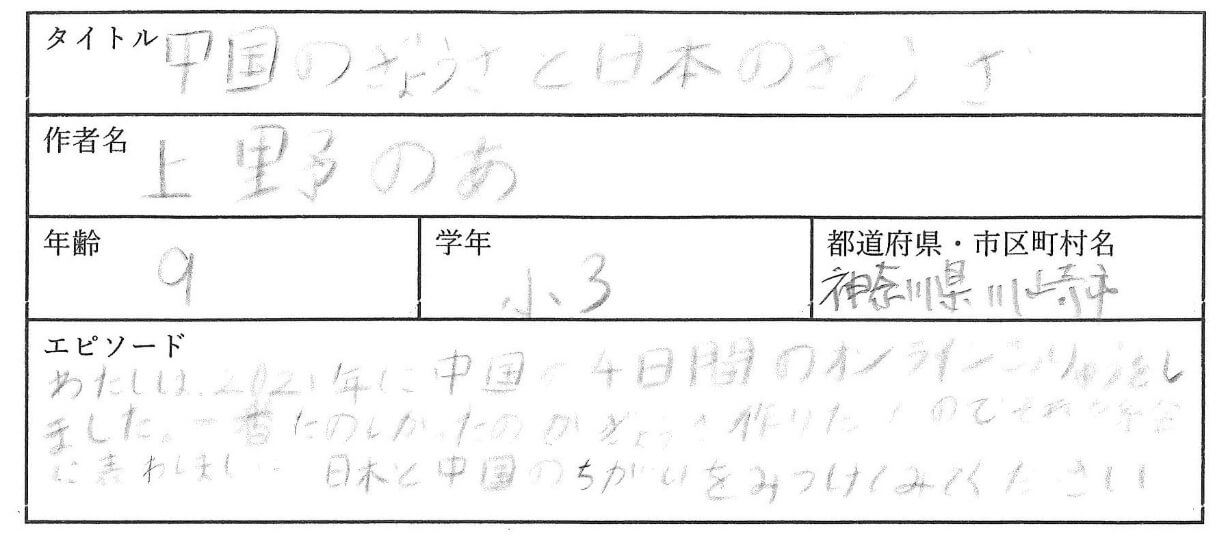 タイトル 中国のぎょうざと日本のぎょうざ
作者名 上野のあ
年齢 9
学年 小3
都道府県・市区町村名 神奈川県川崎市
エピソード
わたしは、2021年に中国 4日間のオンラインこうりゅうをし
ました。一番たのしかったのがぎょうざ作り のでそれを
に表わしました 日本と中国のちがいをみつけてみてください